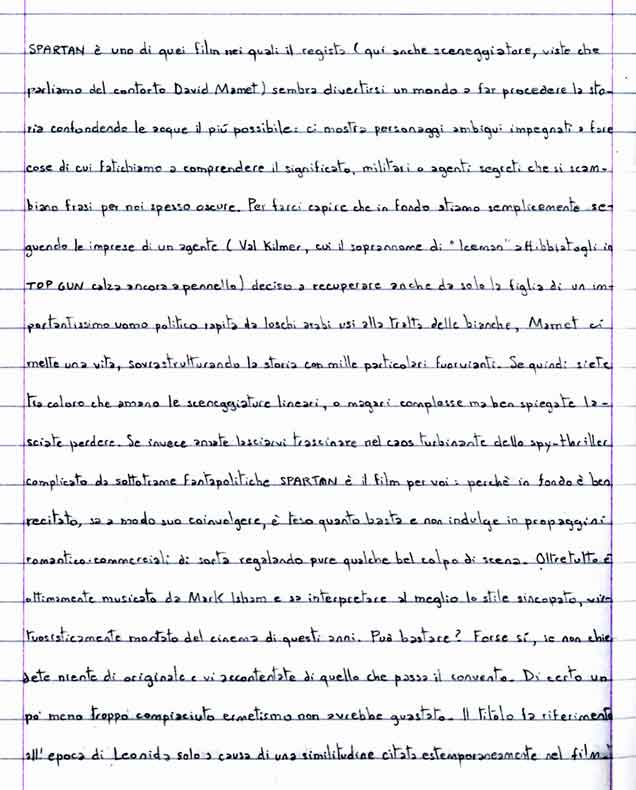 SPARTAN è uno di quei film nei quali il regista (qui anche sceneggiatore, visto che
parliamo del contorto David Mamet) sembra divertirsi un mondo a far procedere la sto-
ria confondendo le acque il più possibile: ci mostra personaggi ambigui impegnati a fare
cose di cui fatichiamo a comprendere il significato, militari o agenti segreti che si scam-
biano frasi per noi spesso oscure. Per farci capire che in fondo stiamo semplicemente se-
guendo le imprese di un agente (Val Kilmer, cui il soprannome di "Iceman" affibbiatogli in
TOP GUN calza ancora a pennello) deciso a recuperare anche da solo la figlia di un im-
portantissimo uomo politico rapita da loschi arabi usi alla tratta delle bianche, Mamet ci
mette una vita, sovrastrutturando la storia con mille particolari fuorvianti. Se quindi siete
tra coloro che amano le sceneggiature lineari, o magari complesse ma ben spiegate la-
sciate perdere. Se invece amate lasciarvi trascinare nel caos turbinante dello spy-thriller
complicato da sottotrame fantapolitiche SPARTAN è il film per voi: perchè in fondo è ben
recitato, sa a modo suo coinvolgere, è teso quanto basta e non indulge in propaggini
romantico-commerciali di sorta regalando pure qualche bel colpo di scena. Oltretutto è
ottimamente musicato da Mark Isham e sa interpretare al meglio lo stile sincopato, vir-
tuosisticamente montato del cinema di questi anni. Può bastare? Forse sí, se non chie
dete niente di originale e vi accontentate di quello che passa il convento. Di certo un
po' meno troppo compiaciuto ermetismo non avrebbe guastato. Il titolo fa riferimento
all'epoca di Leonida solo a causa di una similitudine citata estemporaneamente nel film.